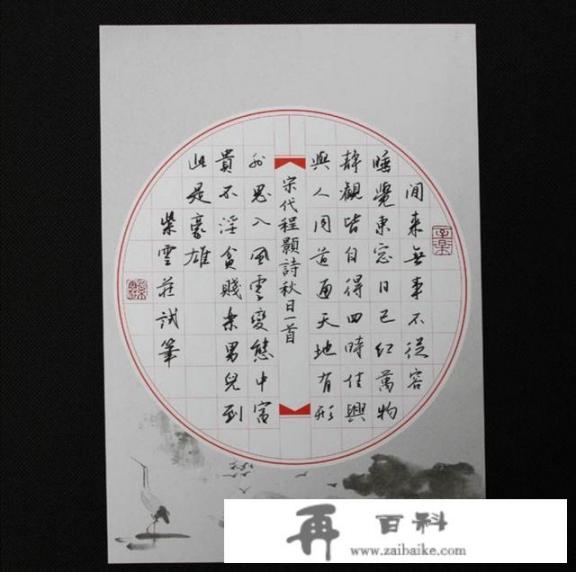 閒来無事不從容
睡覺東窓日已红萬物
静觀皆自得四時佳興
與人同道通天地有形
宋代程顥詩秋日一首
外思入風雲變態中富
貴不淫貧賤樂男兒到
此是豪雄
紫雲莊試筆
再百科
www.zaibaike.com